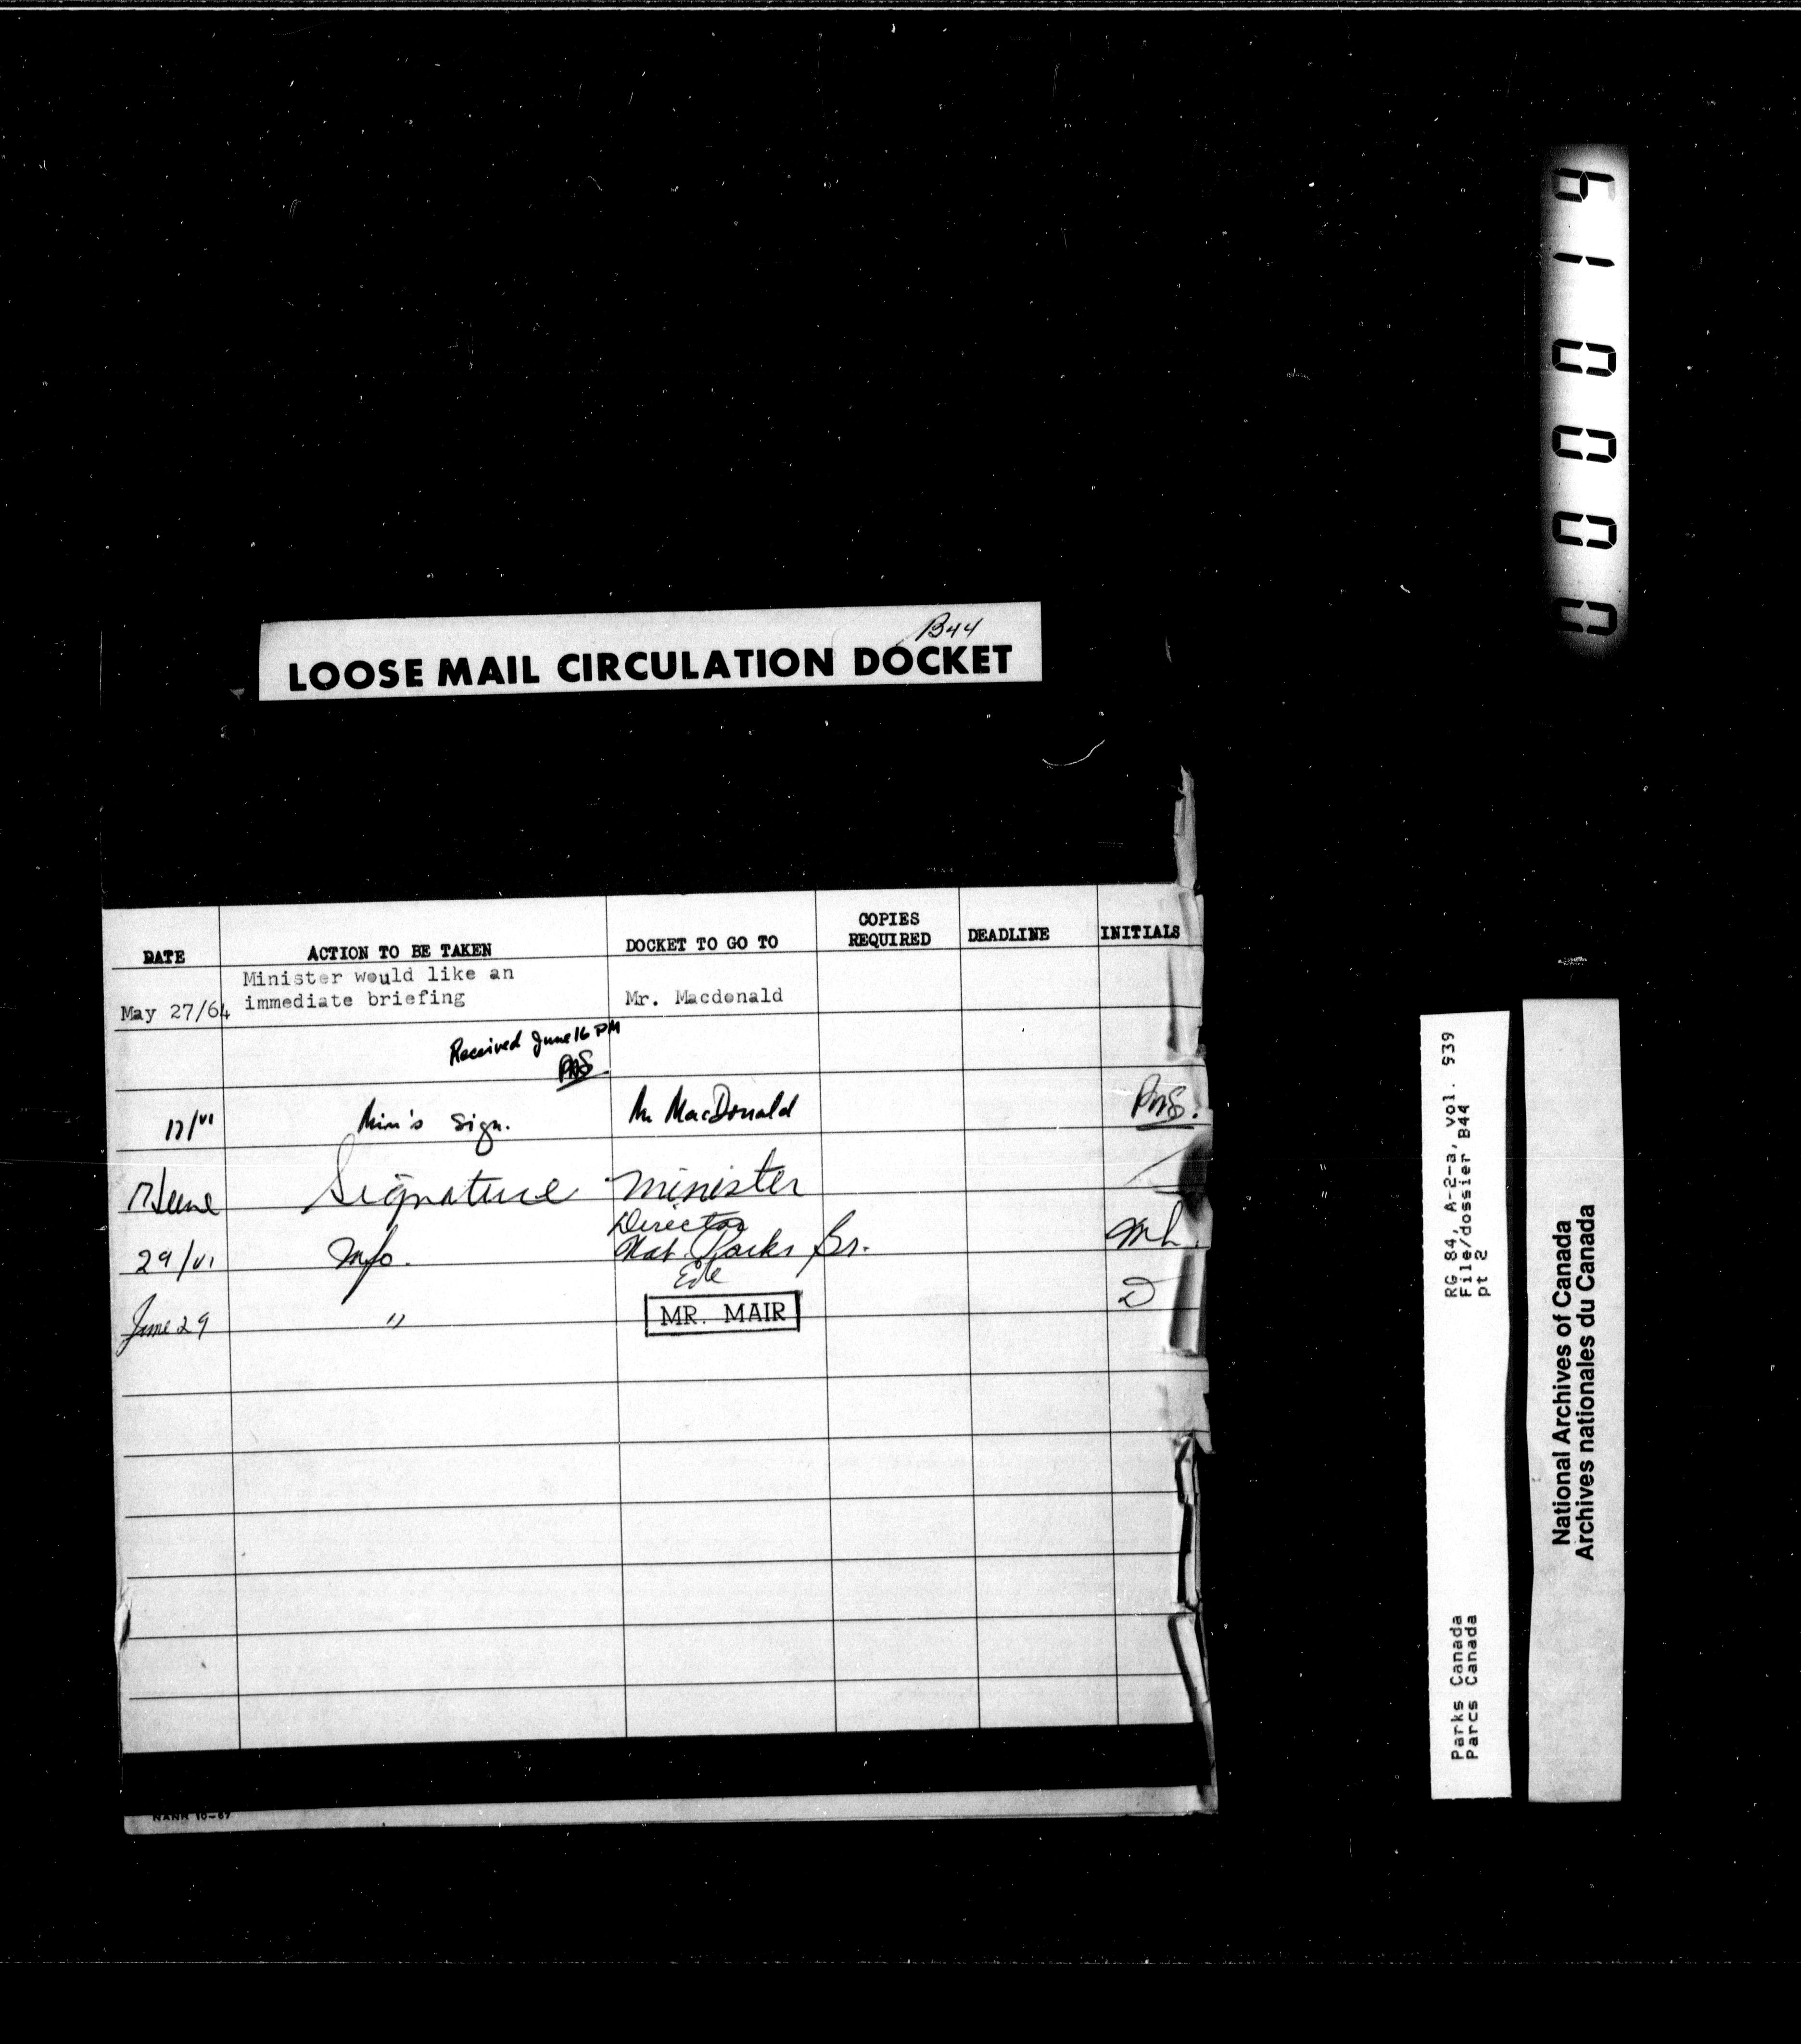 B44
LOOSE MAIL CIRCULATION DOCKET
DATE ACTION TO BE TAKEN DOCKET TO GO TO COPIES REQUIRED DEADLINE INITIALS
Minister would like an
May 27/64 immediate briefing Mr. Macdonald
Received June 16 PM
17/VI Min's sign. MacDonald
June Signature Minister
Director
29/VI Info. Nat. Parks Br.
June 29 " MR. MAIR
NANR 10-67
000014
RG 84, A-2-a, vol. 939
File/dossier B44
pt 2
Parks Canada
Parcs Canada
National Archives of Canada
Archives nationales du Canada